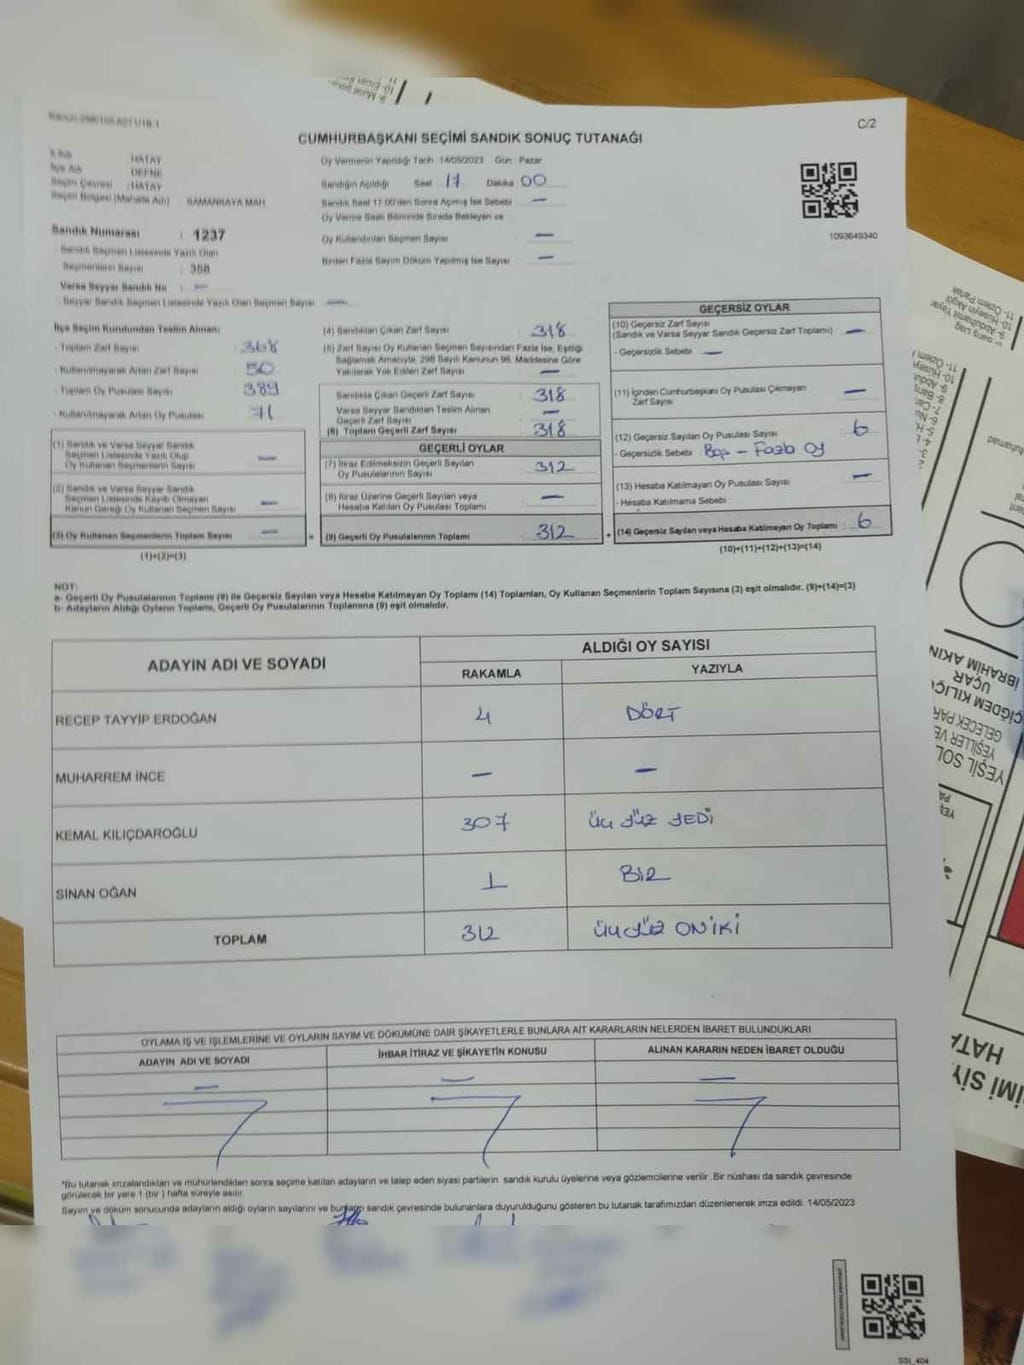 C/2
CUMHURBAŞKANI SEÇİMİ SANDIK SONUÇ TUTANAĞI
İl Adı : HATAY
İlçe Adı : DEFNE
Seçim Çevresi : HATAY
Seçim Bölgesi (Mahalle Adı) SAMANKAYA MAH.
Oy Vermenin Yapıldığı Tarih : 14/05/2023 Gün : Pazar
Sandığın Açıldığı Saat 17 Dakika 00
Sandık Saat 17.00'den Sonra Açılmış İse Sebebi —
Oy Verme Saati Bitiminde Sırada Bekleyen ve
Oy Kullandırılan Seçmen Sayısı —
Birden Fazla Sayım Döküm Yapılmış İse Sayısı : —
1093649340
Sandık Numarası : 1237
Sandık Seçmen Listesinde Yazılı Olan
Seçmenlerin Sayısı : 358
Varsa Seyyar Sandık No : —
Seyyar Sandık Seçmen Listesinde Yazılı Olan Seçmen Sayısı : —
İlçe Seçim Kurulundan Teslim Alınan:
Toplam Zarf Sayısı 368
Kullanılmayarak Artan Zarf Sayısı 50
Toplam Oy Pusulası Sayısı 389
Kullanılmayarak Artan Oy Pusulası 71
(1) Sandık ve Varsa Seyyar Sandık
Seçmen Listesinde Yazılı Olup
Oy Kullanan Seçmenlerin Sayısı —
(2) Sandık ve Varsa Seyyar Sandık
Seçmen Listesinde Kayıtlı Olmayan
Kanun Gereği Oy Kullanan Seçmen Sayısı —
(3) Oy Kullanan Seçmenlerin Toplam Sayısı —
(1)+(2)=(3)
(4) Sandıktan Çıkan Zarf Sayısı : 318
(5) Zarf Sayısı Oy Kullanan Seçmen Sayısından Fazla İse, Eşitliği
Sağlamak Amacıyla, 298 Sayılı Kanunun 98. Maddesine Göre
Yakılarak Yok Edilen Zarf Sayısı —
Sandıkta Çıkan Geçerli Zarf Sayısı 318
Varsa Seyyar Sandıktan Teslim Alınan
Geçerli Zarf Sayısı —
(6) Toplam Geçerli Zarf Sayısı 318
GEÇERLİ OYLAR
(7) İtiraz Edilmeksizin Geçerli Sayılan
Oy Pusulasının Sayısı 312
(8) İtiraz Üzerine Geçerli Sayılan veya
Hesaba Katılan Oy Pusulası Toplamı —
(9) Geçerli Oy Pusulalarının Toplamı 312
GEÇERSİZ OYLAR
(10) Geçersiz Zarf Sayısı
(Sandık ve Varsa Seyyar Sandık Geçersiz Zarf Toplamı) —
- Geçersizlik Sebebi : —
(11) İçinden Cumhurbaşkanı Oy Pusulası Çıkmayan
Zarf Sayısı —
(12) Geçersiz Sayılan Oy Pusulası Sayısı 6
- Geçersizlik Sebebi : Boş - Fazla Oy
(13) Hesaba Katılmayan Oy Pusulası Sayısı —
- Hesaba Katılmama Sebebi :
(14) Geçersiz Sayılan veya Hesaba Katılmayan Oy Toplamı : 6
(10)+(11)+(12)+(13)=(14)
NOT:
a- Geçerli Oy Pusulalarının Toplamı (9) ile Geçersiz Sayılan veya Hesaba Katılmayan Oy Toplamı (14) Toplamları, Oy Kullanan Seçmenlerin Toplam Sayısına (3) eşit olmalıdır. (9)+(14)=(3)
b- Adayların Aldığı Oyların Toplamı, Geçerli Oy Pusulalarının Toplamına (9) eşit olmalıdır.
ADAYIN ADI VE SOYADI
ALDIĞI OY SAYISI
RAKAMLA YAZIYLA
RECEP TAYYİP ERDOĞAN 4 DÖRT
MUHARREM İNCE — —
KEMAL KILIÇDAROĞLU 307 ÜÇ YÜZ YEDİ
SİNAN OĞAN 1 BİR
TOPLAM 312 ÜÇ YÜZ ONİKİ
OYLAMA İŞ VE İŞLEMLERİNE VE OYLARIN SAYIM VE DÖKÜMÜNE DAİR ŞİKAYETLERLE BUNLARA AİT KARARLARIN NELERDEN İBARET BULUNDUKLARI
ADAYIN ADI VE SOYADI İHBAR İTİRAZ VE ŞİKAYETİN KONUSU ALINAN KARARIN NEDEN İBARET OLDUĞU
*Bu tutanak imzalandıktan ve mühürlendikten sonra seçime katılan adayların ve talep eden siyasi partilerin sandık kurulu üyelerine veya gözlemcilerine verilir. Bir nüshası da sandık çevresinde
görülecek bir yere 1 (bir ) hafta süreyle asılır.
Sayım ve döküm sonucunda adayların aldığı oyların sayılarını ve bunların sandık çevresinde bulunanlara duyurulduğunu gösteren bu tutanak tarafımızdan düzenlenerek imza edildi. 14/05/2023
SSI_404
İBRAHİM AKIN
ÇİĞDEM KILIÇ
UÇAR
YEŞİL SOL
HATA